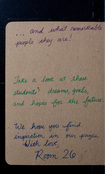 ... and what remarkable
people they are!
Take a look at these
students' dreams, goals,
and hopes for the future.
We hope you find
inspiration in our pages.
With love,
Room 26